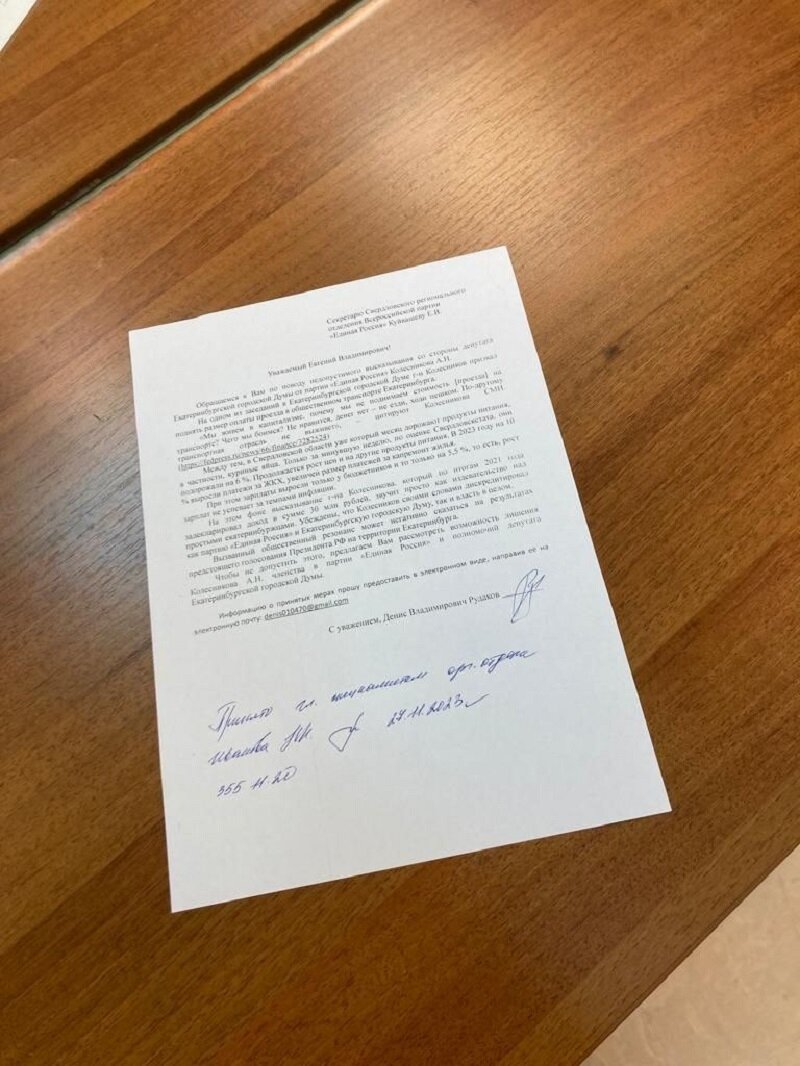 Секретарю Свердловского регионального
отделения Всероссийской партии
«Единая Россия» Куйвашеву Е.В.
Уважаемый Евгений Владимирович!
Обращаемся к Вам по поводу недопустимого высказывания со стороны депутата
Екатеринбургской городской Думы от партии «Единая Россия» Колесникова А.Н.
На одном из заседаний в Екатеринбургской городской Думе г-н Колесников призвал
поднять размер оплаты проезда в общественном транспорте Екатеринбурга.
«Мы живем в капитализме, почему мы не поднимаем стоимость [проезда] на
транспорте? Чего мы боимся? Не нравится, денег нет – не езди, ходи пешком. По-другому
транспортная отрасль не выживет, – цитируют Колесникова СМИ
(https://fedpress.ru/news/66/finance/3282524)
Между тем, в Свердловской области уже который месяц дорожают продукты питания,
в частности, куриные яйца. Только за минувшую неделю, по оценке Свердловскстата, они
подорожали на 6 %. Продолжается рост цен и на другие продукты питания. В 2023 году на 10
% выросли платежи за ЖКХ, увеличен размер платежей за капремонт жилья.
При этом зарплаты выросли только у бюджетников и то только на 5,5 %, то есть, рост
зарплат не успевает за темпами инфляции.
На этом фоне высказывание г-на Колесникова, который по итогам 2021 года
задекларировал доход в сумме 36 млн рублей, звучит просто как издевательство над
простыми екатеринбуржцами. Убеждены, что Колесников своими словами дискредитировал
как партию «Единая Россия» и Екатеринбургскую городскую Думу, как и власть в целом.
Вызванный общественный резонанс может негативно сказаться на результатах
предстоящего голосования Президента РФ на территории Екатеринбурга.
Чтобы не допустить этого, предлагаем Вам рассмотреть возможность лишения
Колесникова А.Н. членства в партии «Единая Россия» и полномочий депутата
Екатеринбургской городской Думы.
Информацию о принятых мерах прошу предоставить в электронном виде, направив её на
электронную почту: denis010470@gmail.com
С уважением, Денис Владимирович Рудаков
Принято гл. специалистом орг. отдела
Иванова 27.11.2023г
355 11.20